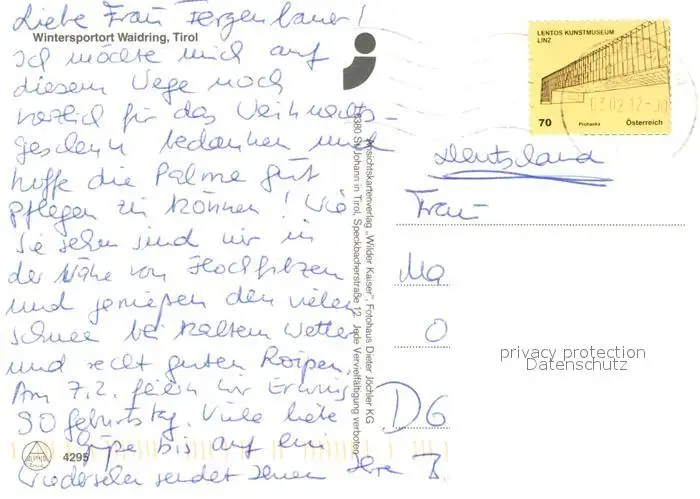 Liebe Frau Fergenbauer!
Wintersportort Waidring, Tirol
Ich möchte mich auf
diesem Wege noch
herzlich für das Weihnachts-
geschenk bedanken und
hoffe die Palme gut
pflegen zu können! Wie
Sie sehen sind wir in
der Nähe von Hochfilzen
und genießen den vielen
Schnee bei kaltem Wetter
und recht guten Loipen.
Am 7.2. feiern wir Erwins
90 Geburtstag. Viele liebe
Grüße bis auf ein
Wiedersehen sendet Ihnen Ihre
4295
Ansichtskartenverlag „Wilder Kaiser“, Fotohaus Dieter Jöchler KG
6380 St. Johann in Tirol, Speckbacherstraße 12 Jede Vervielfältigung verboten
LENTOS KUNSTMUSEUM
LINZ
70 Prohaska Österreich
03.02.12
Deutschland
Frau
Ma
O
DG
privacy protection
Datenschutz